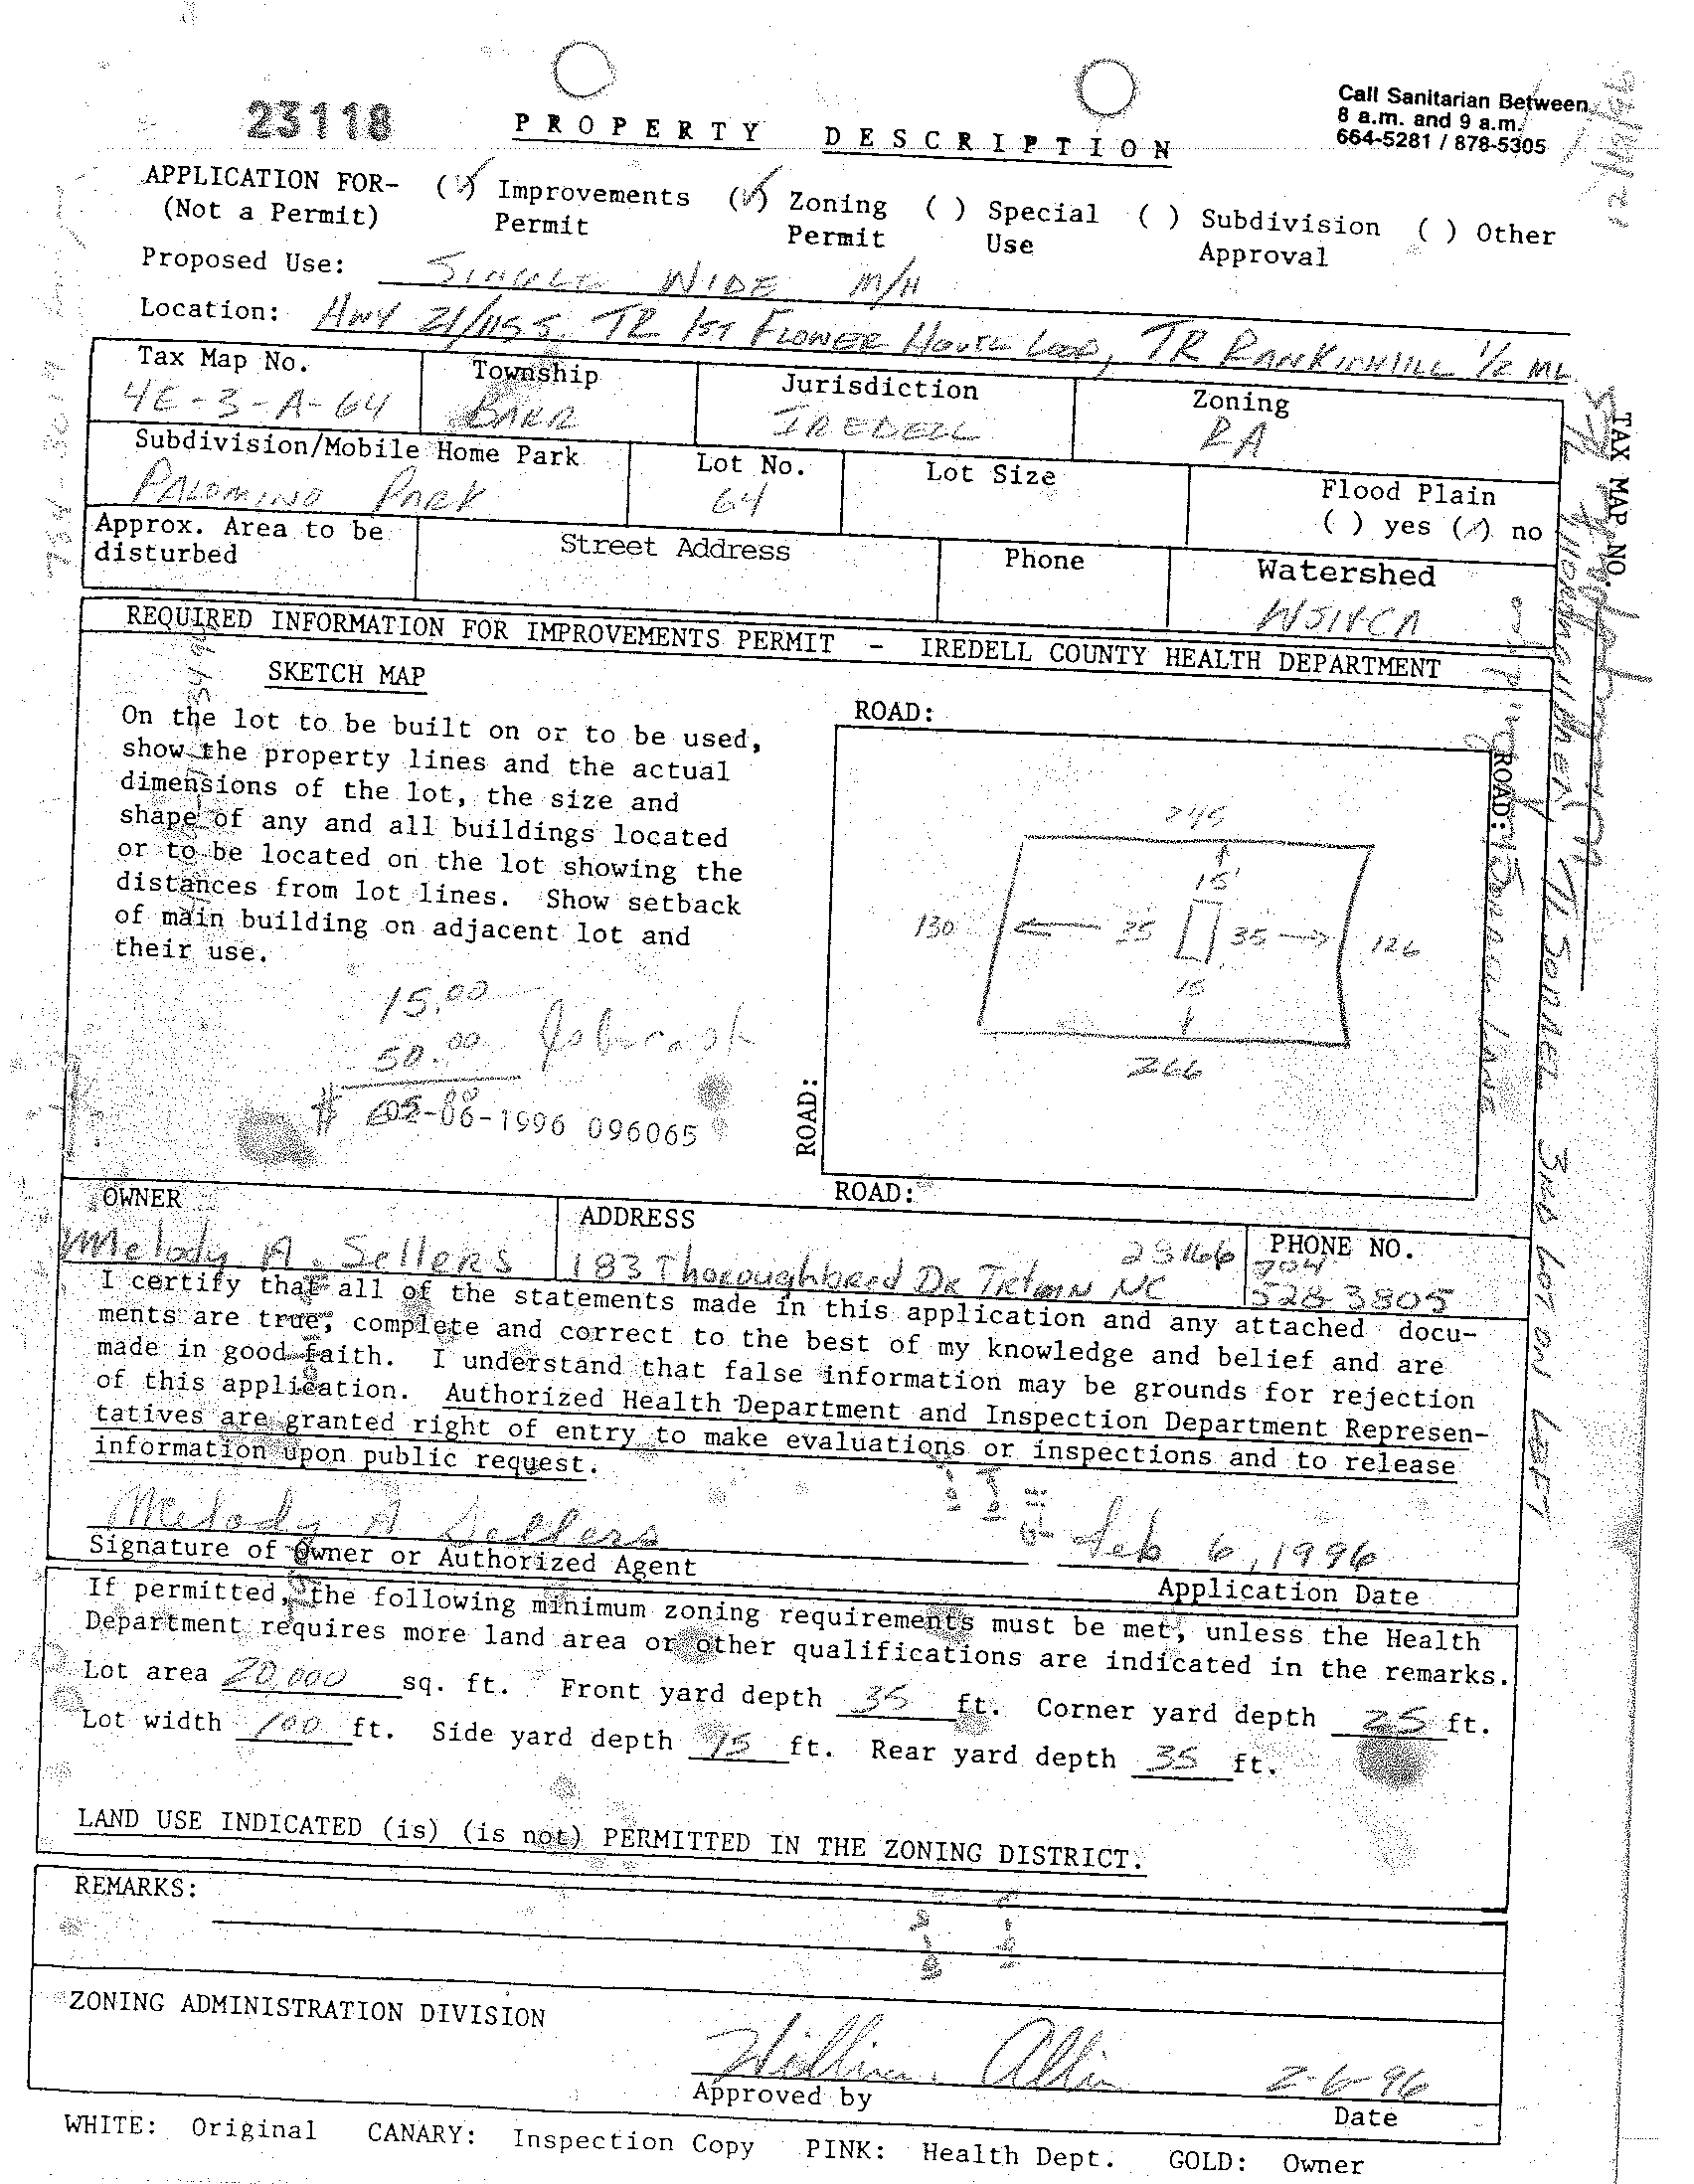 23118
PROPERTY DESCRIPTION
Call Sanitarian Between
8 a.m. and 9 a.m.
664-5281 / 878-5305
APPLICATION FOR- (✓) Improvements (✓) Zoning ( ) Special ( ) Subdivision ( ) Other
(Not a Permit) Permit Permit Use Approval
Proposed Use: SINGLE WIDE M/H
Location: HWY 21/115 S, TR 1ST FLOWER HOUSE LOOP, TR RANKINHILL 1/2 ML
Tax Map No. Township Jurisdiction Zoning
4E-3-A-64 BARR IREDELL RA
Subdivision/Mobile Home Park Lot No. Lot Size Flood Plain
PALOMINO PARK 64 ( ) yes (✓) no
Approx. Area to be disturbed Street Address Phone Watershed
WSIVCA
TAX MAP NO.
REQUIRED INFORMATION FOR IMPROVEMENTS PERMIT - IREDELL COUNTY HEALTH DEPARTMENT
SKETCH MAP
On the lot to be built on or to be used,
show the property lines and the actual
dimensions of the lot, the size and
shape of any and all buildings located
or to be located on the lot showing the
distances from lot lines. Show setback
of main building on adjacent lot and
their use.
ROAD:
245
15'
130 35 35 126
15
266
ROAD:
ROAD:
ROAD:
LANE
TL SORREL 3RD LOT ON LEFT
15.00
50.00
$ 02-06-1996 096065
OWNER ADDRESS PHONE NO.
Melody A. Sellers 183 Thoroughbred Dr Trtmn NC 28166 704 528-3805
I certify that all of the statements made in this application and any attached docu-
ments are true, complete and correct to the best of my knowledge and belief and are
made in good faith. I understand that false information may be grounds for rejection
of this application. Authorized Health Department and Inspection Department Represen-
tatives are granted right of entry to make evaluations or inspections and to release
information upon public request.
Melody A Sellers Feb 6, 1996
Signature of Owner or Authorized Agent Application Date
If permitted, the following minimum zoning requirements must be met, unless the Health
Department requires more land area or other qualifications are indicated in the remarks.
Lot area 20,000 sq. ft. Front yard depth 35 ft. Corner yard depth 25 ft.
Lot width 100 ft. Side yard depth 15 ft. Rear yard depth 35 ft.
LAND USE INDICATED (is) (is not) PERMITTED IN THE ZONING DISTRICT.
REMARKS:
ZONING ADMINISTRATION DIVISION
William Allin 2-6-96
Approved by Date
WHITE: Original CANARY: Inspection Copy PINK: Health Dept. GOLD: Owner